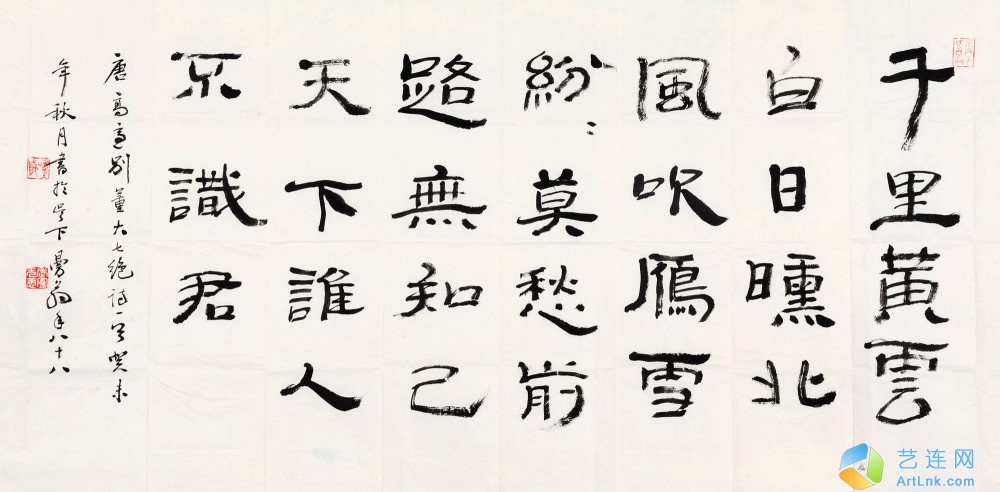 千里黃雲
白日曛北
風吹雁雪
紛〻莫愁前
路無知己
天下誰人
不識君
唐高適別董大七絕詩一首癸未
年秋月書於吳下曼翁年八十八
艺连网
ArtLnk.com